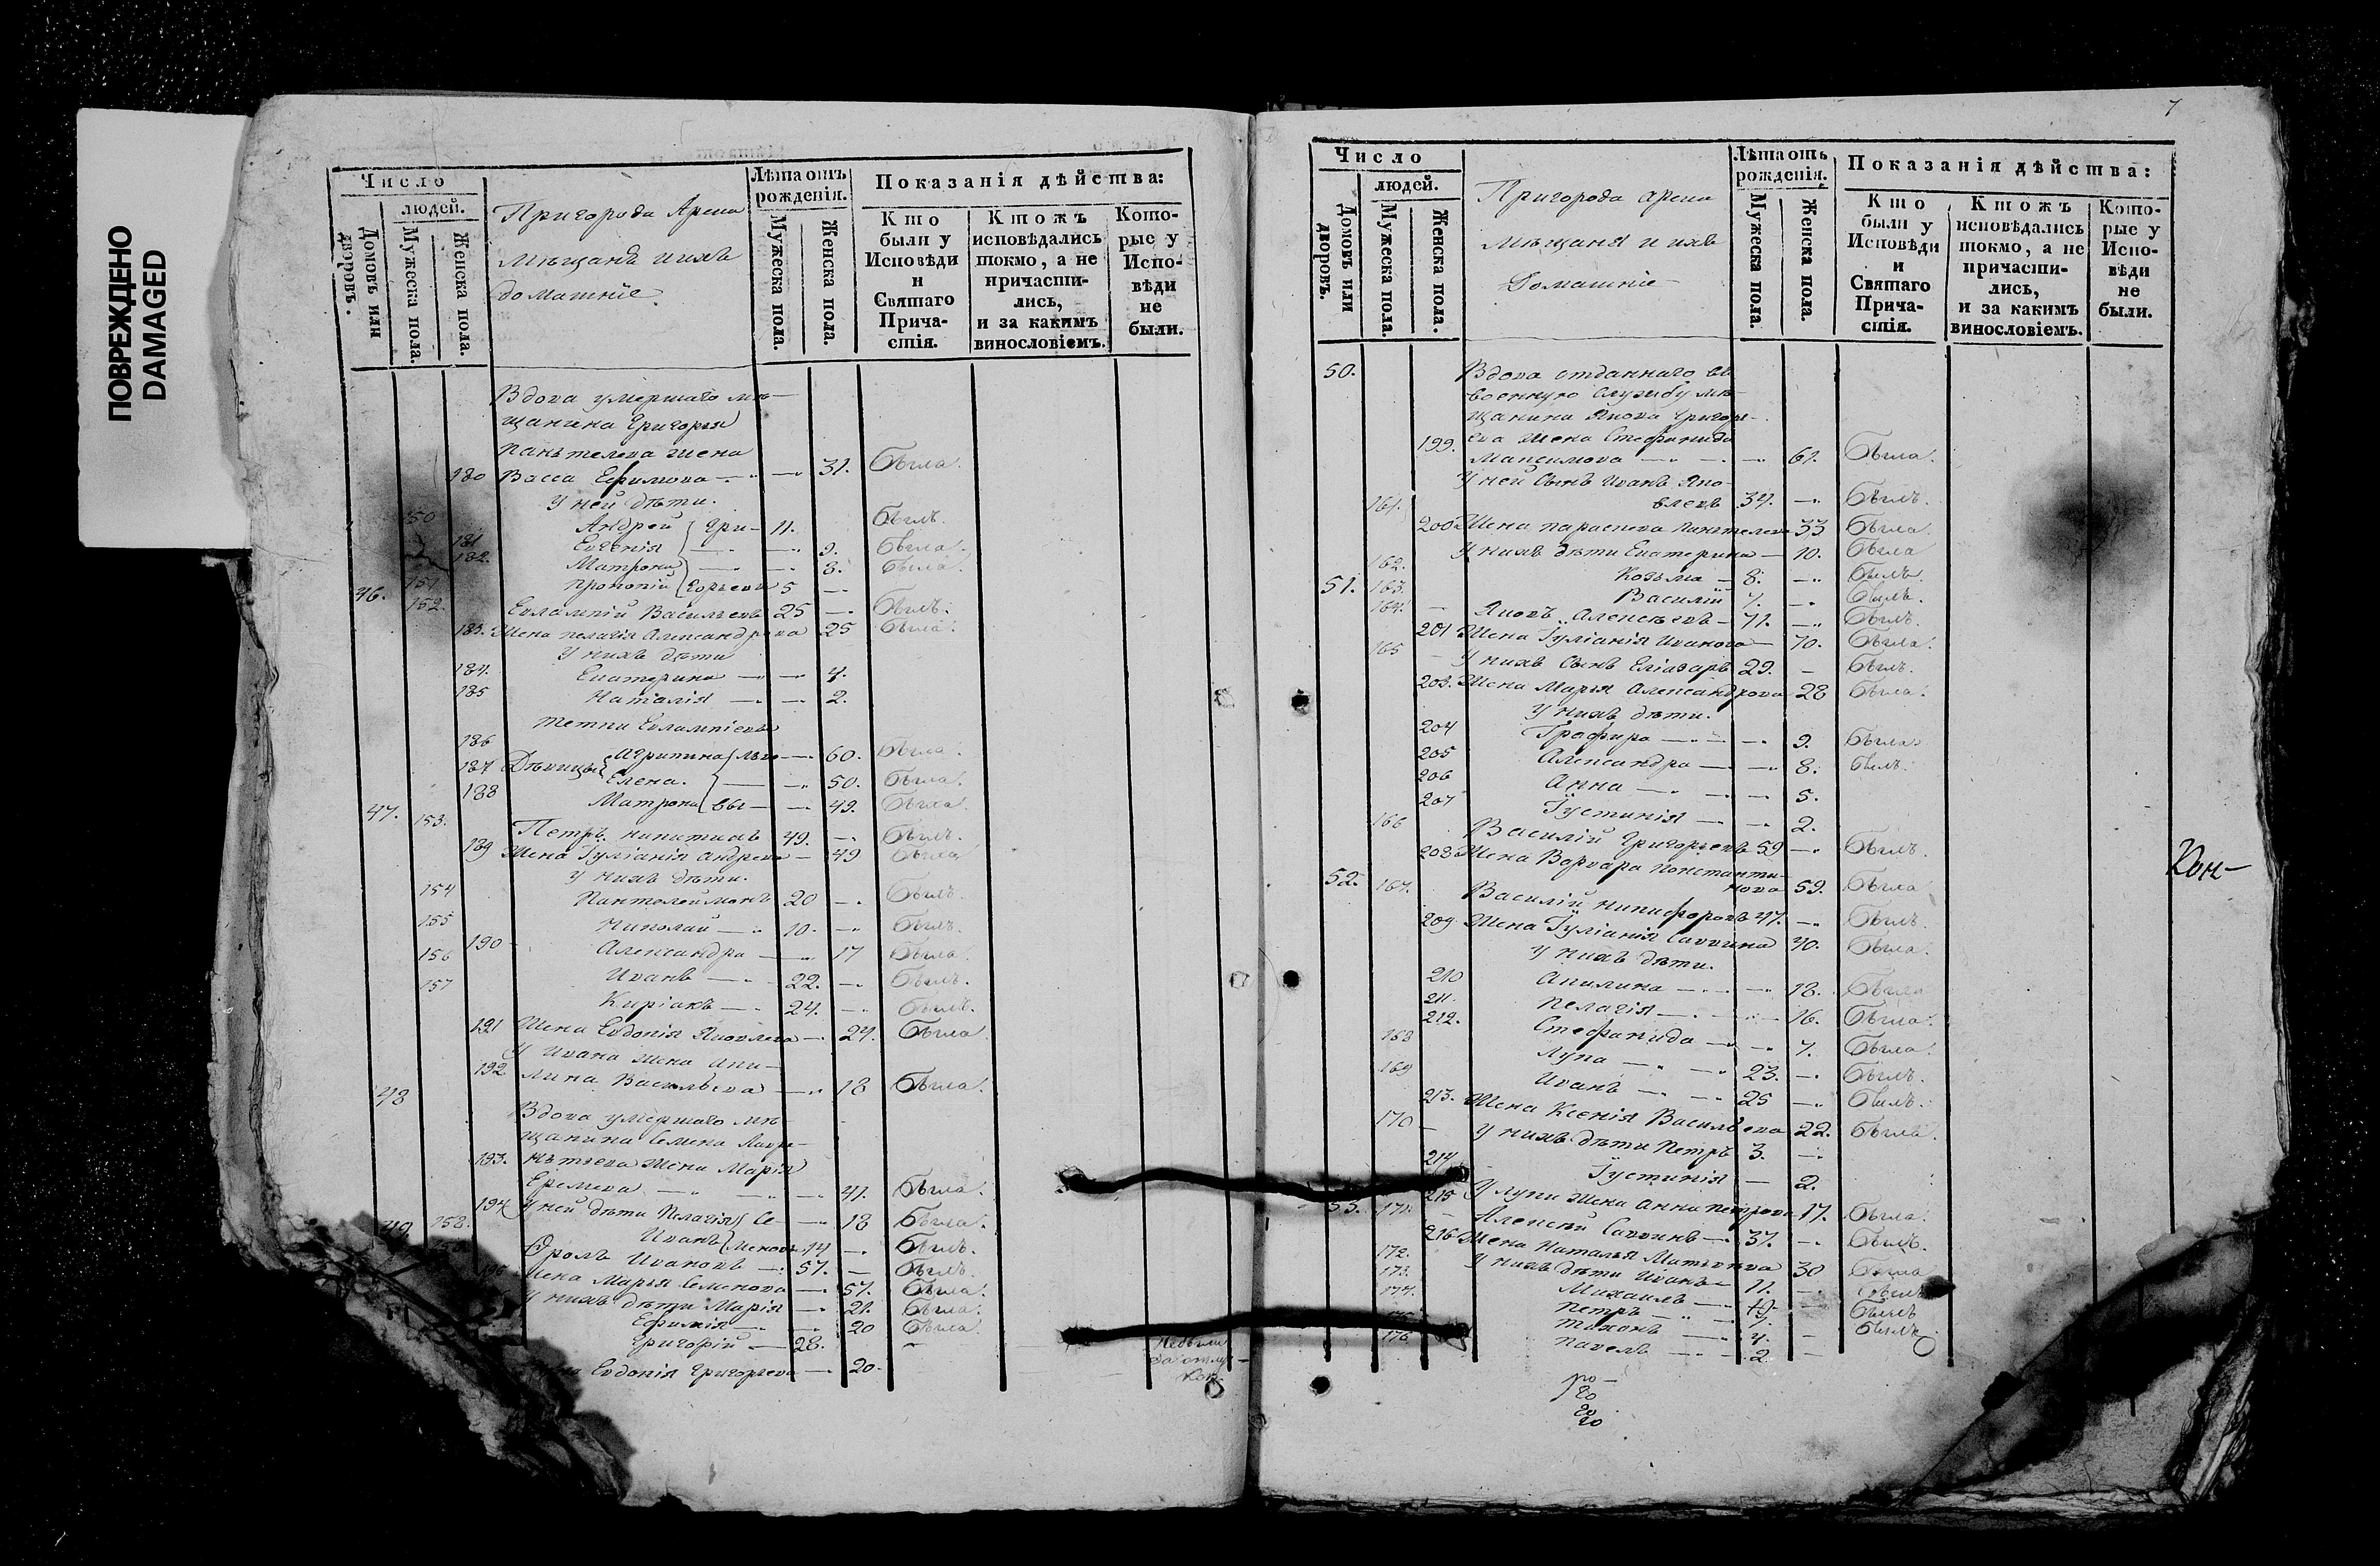 ПОВРЕЖДЕНО
DAMAGED
Число
людей.
Домовъ или дворовъ.
Мужеска пола.
Женска пола.
Пригорода Арска
мѣщанъ и ихъ
домашніе.
Лѣта отъ рожденія.
Мужеска пола.
Женска пола.
Показанія дѣйства:
Кто были у Исповѣди и Святаго Прича-стія.
Ктожъ исповѣдались токмо, а не причасти-лись, и за какимъ винословіемъ.
Кото-рые у Испо-вѣди не были.
Вдова умершаго мѣ-
щанина Григорья
Пантелева жена
180 Васса Ефимова 31. была.
У ней дѣти.
150 Андрей Гри- 11. былъ.
181 Евгенія 9. была.
182. Матрона 8. была.
151 Прокопій горьевы 5
46. 152. Евлампій Васильевъ 25 былъ.
183. Жена Пелагія Александрова 25 была.
У нихъ дѣти
184. Екатерина 4.
185 Наталія 2.
Тетки Евлампіевы
186 Агрипина 60. была.
187 Дѣвицы Елена. 50. была.
188 Матрона 49. была.
47. 153. Петръ Никитинъ 49. былъ.
189 Жена Іуліанія Андрева 49 была
У нихъ дѣти.
154 Пантелеймонъ 20 былъ.
155 Николай 10. былъ.
190 Александра 17 была.
156 Иванъ 22. былъ.
157 Киріакъ 24. былъ.
191 Жена Евдокія Яковлева 24. была
У Ивана жена Аки-
192 лина Васильева 18 была.
48 Вдова умершаго мѣ-
щанина Семена Лавре-
193. нтьева жена Марія
Еремева 41. была.
194 У ней дѣти Пелагія Се- 18 была.
158. Иванъ меновы 14 былъ.
49. Фролъ Ивановъ 57. былъ.
Жена Марья Семенова 57. была.
У нихъ дѣти Марія 21. была.
Ефимія 20 была.
Григорій 28.
Евдокія Григорьева 20.
Небыли
за отлу-
кою
7
Число
людей.
Домовъ или дворовъ.
Мужеска пола.
Женска пола.
Пригорода Арска
мѣщаня и ихъ
домашніе
Лѣта отъ рожденія.
Мужеска пола.
Женска пола.
Показанія дѣйства:
Кто были у Исповѣди и Святаго Прича-стія.
Ктожъ исповѣдались токмо, а не причасти-лись, и за какимъ винословіемъ.
Кото-рые у Испо-вѣди не были.
50. Вдова отданнаго въ
военную службу мѣ-
щанина Якова Григорь-
199. ева жена Стефанида
Максимова 61. была.
У ней сынъ Иванъ Яко-
161. влевъ 34. былъ.
200 Жена Параскева Пантелева 33 была
У нихъ дѣти Екатерина 10. была
162. Козьма 8. былъ.
163. Василій 7. былъ.
51. 164. Яковъ Алексѣевъ 71. былъ.
201 Жена Іуліанія Иванова 70. была.
165 У нихъ сынъ Еліазаръ 29. былъ.
203. Жена Марья Александрова 28 была.
У нихъ дѣти.
204 Графира 9. была
205 Александра 8. былъ.
206 Анна 5.
207 Іустинія 2.
166 Василій Григорьевъ 59 былъ.
208 Жена Варвара Константи-
нова 59. была
52. 167. Василій Никифоровъ 47. былъ
209 Жена Іуліанія Саввина 40. была.
У нихъ дѣти.
210 Акилина 18. была
211. Пелагія 16. была.
212. Стефанида 7. была.
168 Лупа 23. былъ.
169 Иванъ 25 былъ.
213. Жена Ксенія Васильева 22. была.
170 У нихъ дѣти Петръ 3.
214 Іустинія 2.
215 У Лупы жена Анна Петрова 17. была.
53. 171. Алексѣй Саввинъ 37. былъ.
216 Жена Наталья Матвѣева 30 была
172. У нихъ дѣти Иванъ 11. былъ
173. Михаилъ былъ
174. Петръ 7. былъ.
Тихонъ 4.
176. Павелъ 2.
Кон-